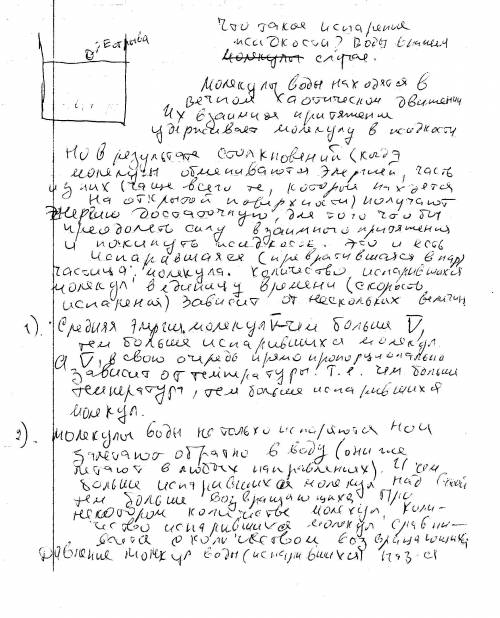 Что такое испарение
жидкости? Воды в нашем
случае.
Молекулы воды находятся в
вечном хаотическом движении
Их взаимное притяжение
удерживает молекулу в жидкости
Но в результате столкновений (когда
молекулы обмениваются энергией, часть
из них (чаще всего те, которые находятся
на открытой поверхности) получают
энергию достаточную, для того что бы
преодолеть силу взаимного притяжения
и покинуть жидкость. Это и есть
испарившаяся (превратившаяся в пар)
частица, молекула. Количество, испарившихся
молекул в единицу времени (скорость
испарения) зависит от нескольких величин
1). Средняя энергия молекул V чем больше V,
тем больше испарившихся молекул.
а V, в свою очередь прямо пропорционально
зависит от температуры. Т.е. чем больше
температура, тем больше испарившихся
молекул.
2). Молекулы воды не только испаряются но и
залетают обратно в воду (они же
летают в любых направлениях). И чем
больше испарившихся молекул над
тем больше возвращающихся. При
некотором количестве молекул, коли-
чество испарившихся молекул сравни-
вается с количеством возвращающихся
Давление молекул воды (испарившихся) наз-ся